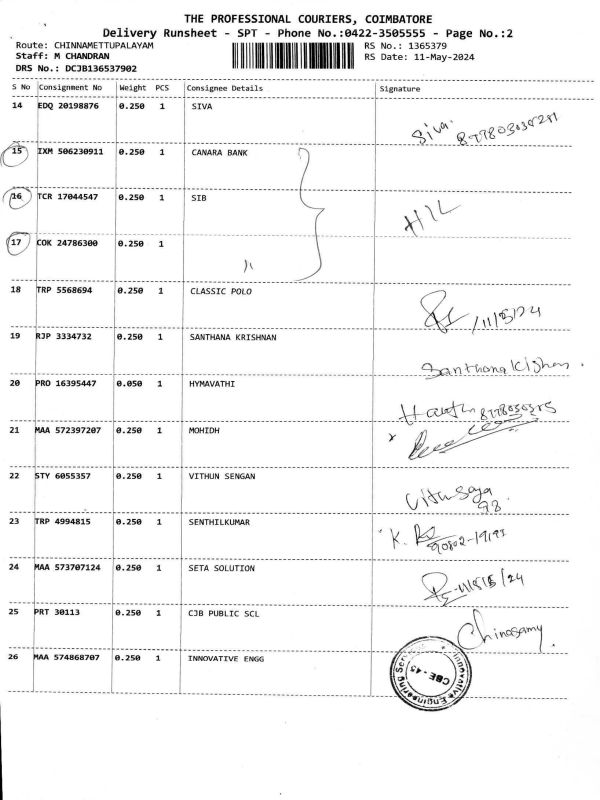 THE PROFESSIONAL COURIERS, COIMBATORE
Delivery Runsheet - SPT - Phone No.:0422-3505555 - Page No.:2
Route: CHINNAMETTUPALAYAM RS No.: 1365379
Staff: M CHANDRAN RS Date: 11-May-2024
DRS No.: DCJB136537902
S No Consignment No Weight PCS Consignee Details Signature
14 EDQ 20198876 0.250 1 SIVA Siva.
15 IXM 506230911 0.250 1 CANARA BANK
16 TCR 17044547 0.250 1 SIB
17 COK 24786300 0.250 1
18 TRP 5568694 0.250 1 CLASSIC POLO
19 RJP 3334732 0.250 1 SANTHANA KRISHNAN
20 PRO 16395447 0.050 1 HYMAVATHI
21 MAA 572397207 0.250 1 MOHIDH
22 STY 6055357 0.250 1 VITHUN SENGAN
23 TRP 4994815 0.250 1 SENTHILKUMAR
24 MAA 573707124 0.250 1 SETA SOLUTION
25 PRT 30113 0.250 1 CJB PUBLIC SCL Chinasamy.
26 MAA 574868707 0.250 1 INNOVATIVE ENGG
Innovative Engineering
CBE - 45